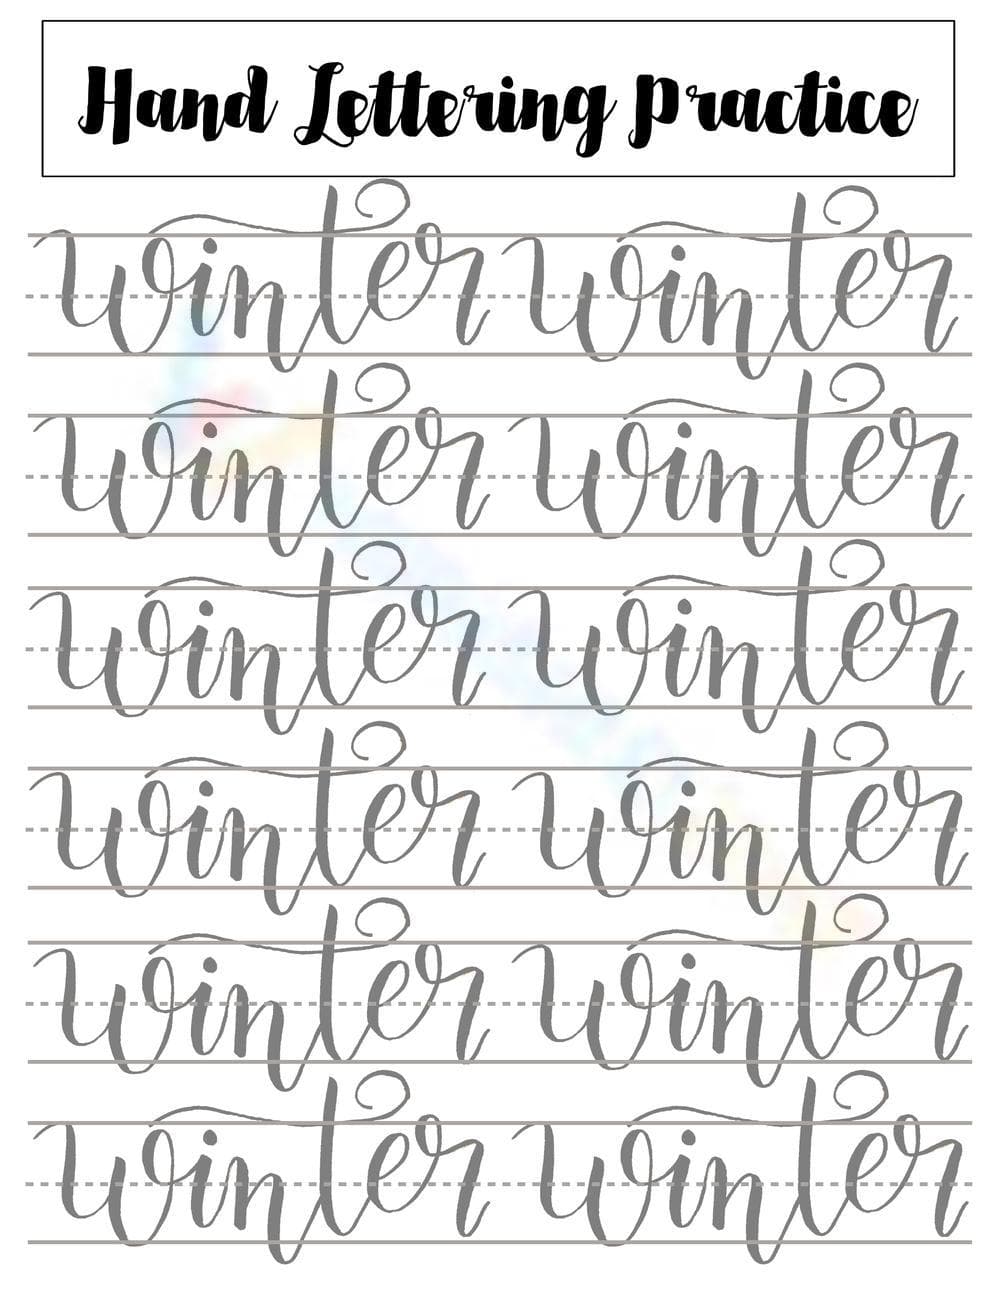 Hand Lettering Practice
winter winter
winter winter
winter winter
winter winter
winter winter
winter winter